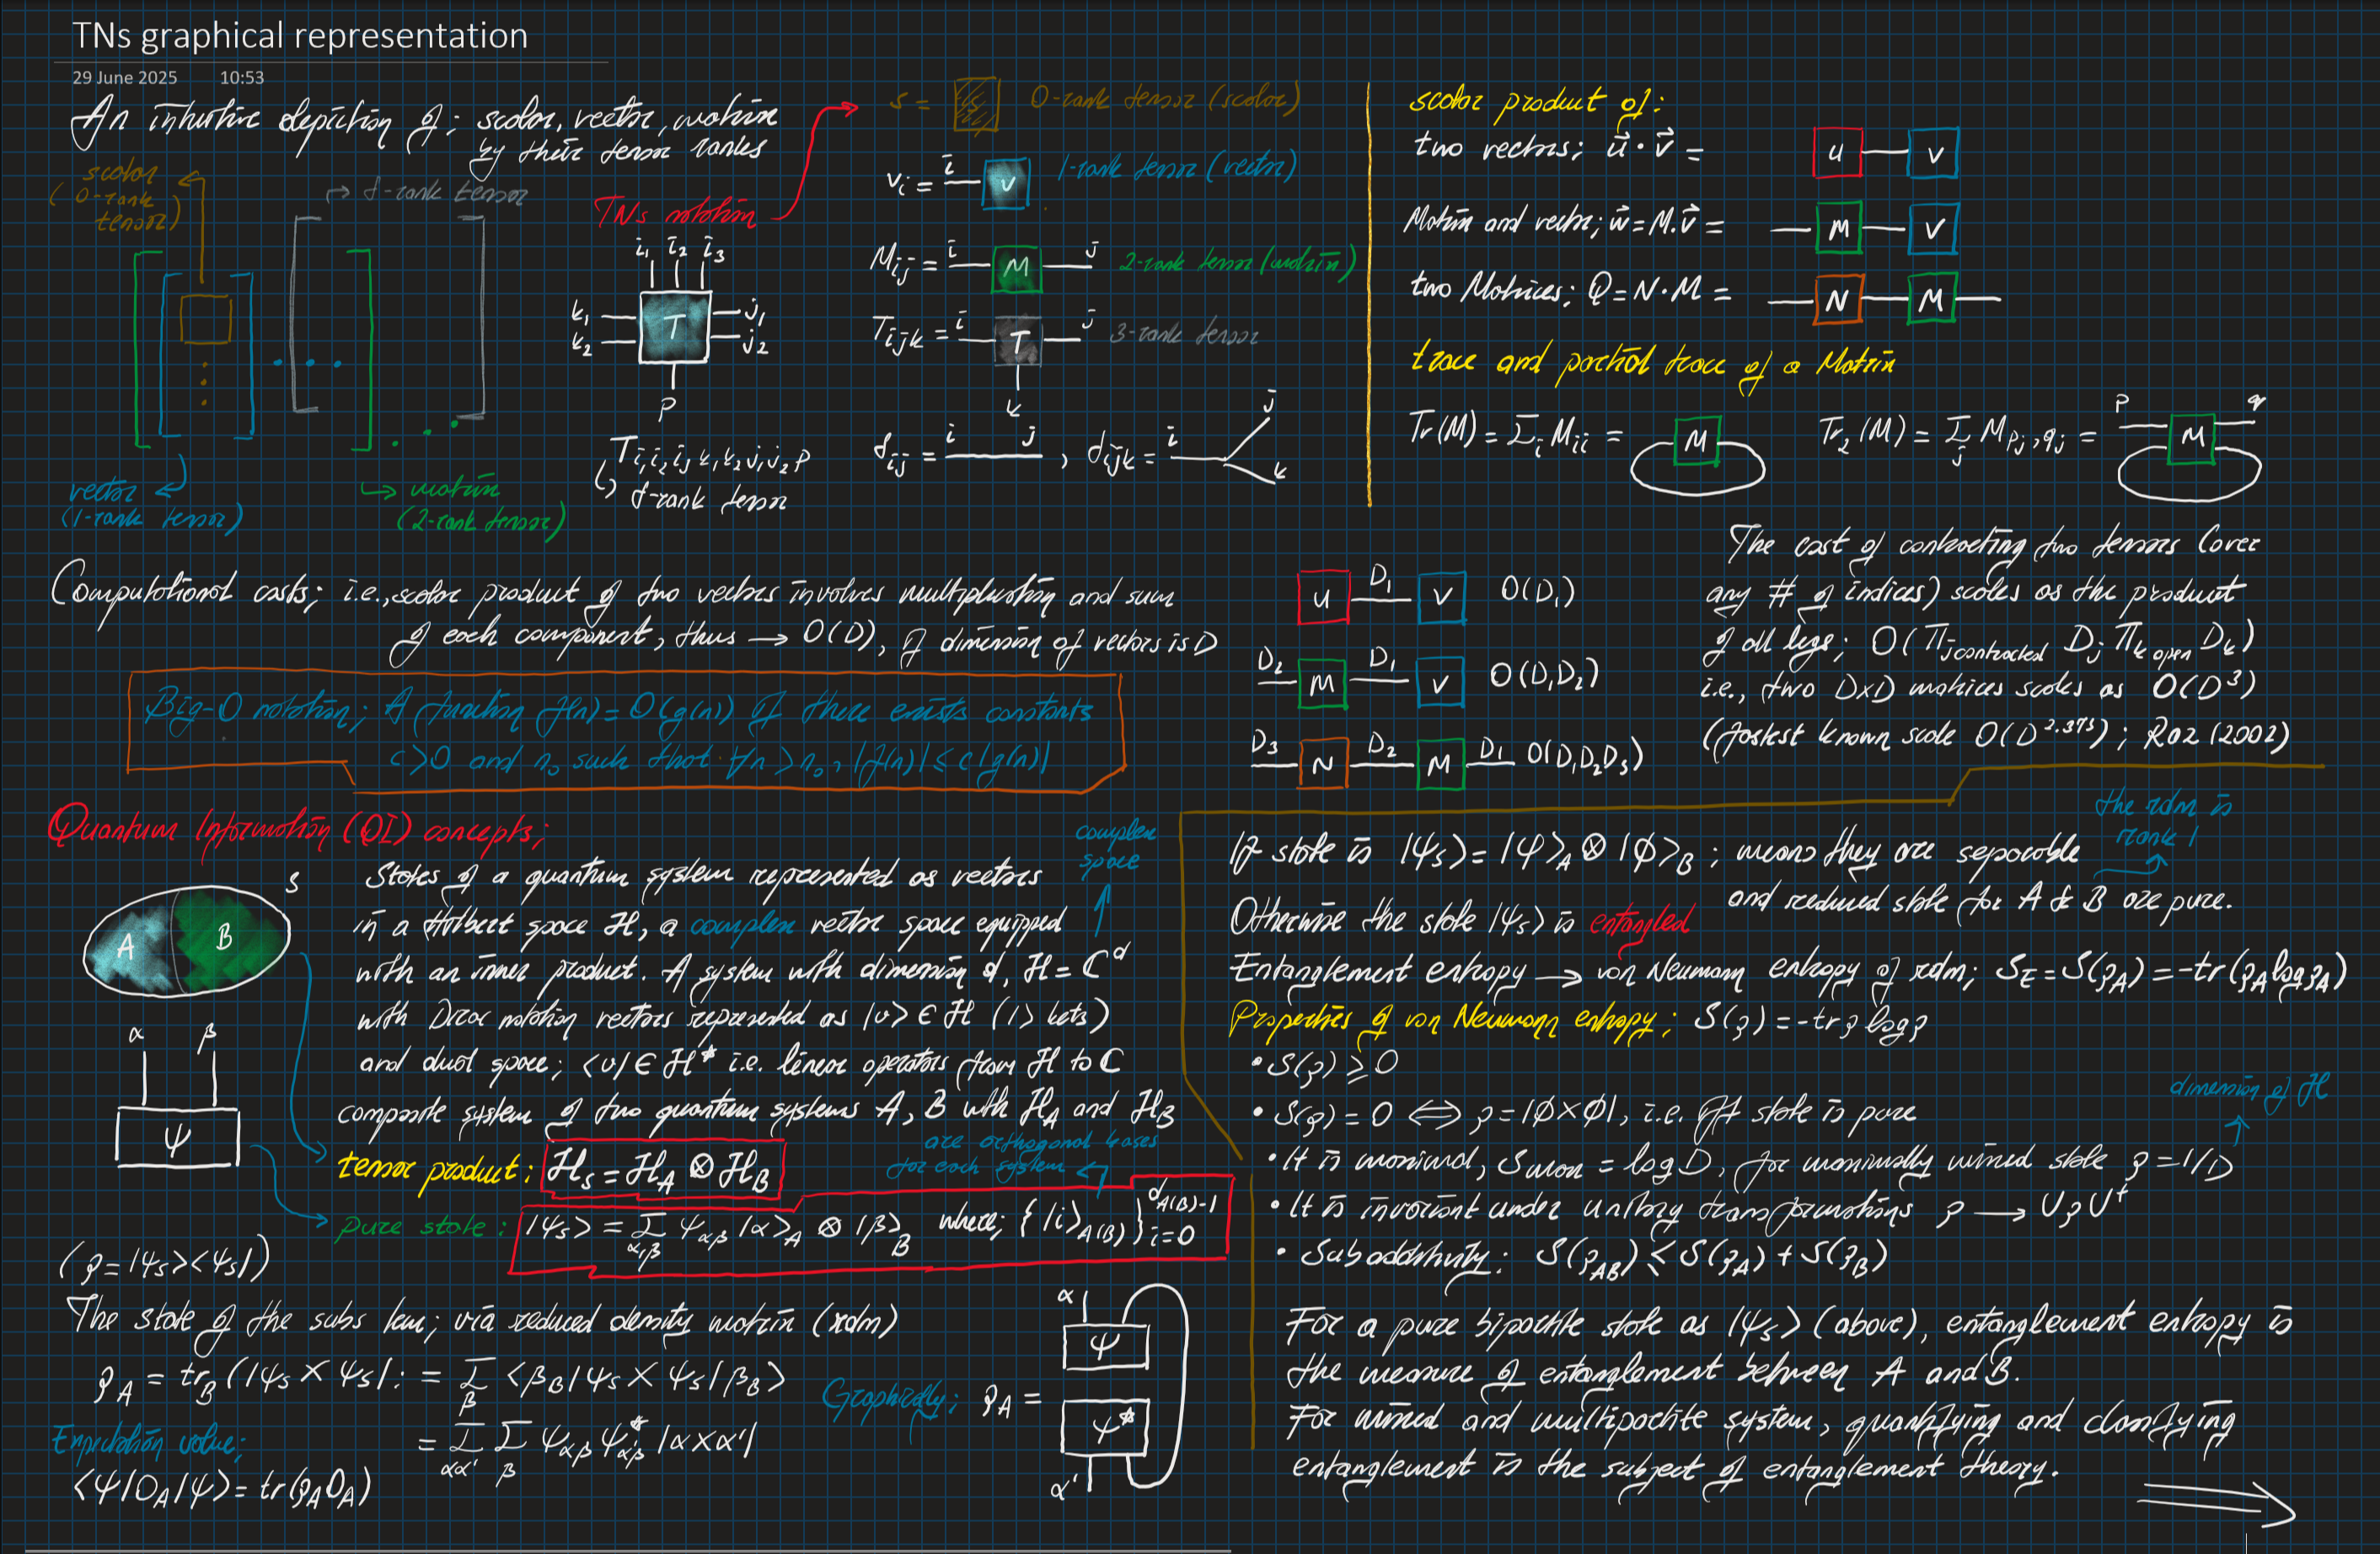 TNs graphical representation
29 June 2025 10:53
An intuitive depiction of; scalar, vector, matrix
by their tensor ranks
scalar
(0-rank
tensor)
→ d-rank tensor
vector
(1-rank tensor)
→ matrix
(2-rank tensor)
TNs notation
i₁ i₂ i₃
k₁ T j₁
k₂ j₂
p
T i₁i₂i₃k₁k₂j₁j₂p
d-rank tensor
s = s 0-rank tensor (scalar)
vᵢ = i v 1-rank tensor (vector)
Mᵢⱼ = i M j 2-rank tensor (matrix)
Tᵢⱼₖ = i T j 3-rank tensor
k
δᵢⱼ = i j , δᵢⱼₖ = i j k
scalar product of:
two vectors; u⃗ · v⃗ = u v
Matrix and vector; w⃗ = M.v⃗ = M v
two Matrices; Q = N·M = N M
trace and partial trace of a Matrix
Tr(M) = Σᵢ Mᵢᵢ = M
Tr₂(M) = Σⱼ Mpj,qj = p M q
Computational costs; i.e., scalar product of two vectors involves multiplication and sum
of each component, thus → O(D), if dimension of vectors is D
Big-O notation; A function f(n) = O(g(n)) if there exists constants
c>0 and n₀ such that ∀n > n₀, |f(n)| ≤ c|g(n)|
u D₁ v O(D₁)
D₂ M D₁ v O(D₁D₂)
D₃ N D₂ M D₁ O(D₁D₂D₃)
The cost of contracting two tensors (over
any # of indices) scales as the product
of all legs; O(Πj contracted Dj Πk open Dk)
i.e., two D×D matrices scales as O(D³)
(fastest known scale O(D^2.373); Raz (2002)
Quantum Information (QI) concepts;
S
A B
complex
space
States of a quantum system represented as vectors
in a Hilbert space ℋ, a complex vector space equipped
with an inner product. A system with dimension d, ℋ = ℂᵈ
with Dirac notation vectors represented as |v> ∈ ℋ (|> kets)
and dual space; <v| ∈ ℋ* i.e. linear operators from ℋ to ℂ
composite system of two quantum systems A, B with ℋA and ℋB
α β
ψ
tensor product: ℋS = ℋA ⊗ ℋB
are orthogonal bases
for each system
pure state: |ψS> = Σα,β ψαβ |α>A ⊗ |β>B where; {|i>A(B)} i=0 dA(B)-1
(ρ = |ψS><ψS|)
The state of the subs tem; via reduced density matrix (rdm)
ρA = trB(|ψS X ψS|: = Σβ <βB|ψS X ψS|βB>
= Σαα' Σβ ψαβ ψ*α'β |α X α'|
Expectation value;
<ψ|OA|ψ> = tr(ρA OA)
Graphically; ρA =
α
ψ
ψ*
α'
the rdm is
rank 1
If state is |ψS> = |φ>A ⊗ |ϕ>B ; means they are separable
and reduced state for A & B are pure.
Otherwise the state |ψS> is entangled
Entanglement entropy → von Neumann entropy of rdm; SE = S(ρA) = -tr(ρA log ρA)
Properties of von Neumann entropy; S(ρ) = -tr ρ log ρ
• S(ρ) ≥ 0
• S(ρ) = 0 ⟺ ρ = |ϕ X ϕ|, i.e. iff state is pure
dimension of ℋ
• It is maximal, Smax = log D, for maximally mixed state ρ = 1/D
• It is invariant under unitary transformations ρ → UρU†
• Subadditivity: S(ρAB) ≤ S(ρA) + S(ρB)
For a pure bipartite state as |ψS> (above), entanglement entropy is
the measure of entanglement between A and B.
For mixed and multipartite system, quantifying and clarifying
entanglement is the subject of entanglement theory.